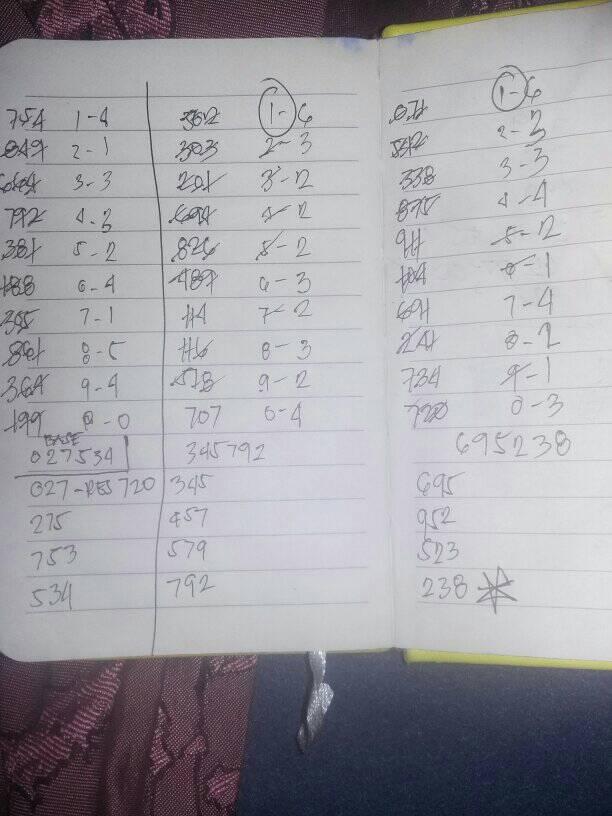 754 1-4
849 2-1
664 3-3
792 4-3
381 5-2
188 6-4
305 7-1
861 8-5
364 9-4
199 0-0
BASE
027534
027-RES 720
275
753
534
362 1-6
303 2-3
201 3-2
694 4-2
826 5-2
489 6-3
114 7-2
116 8-3
518 9-2
707 0-4
345792
345
457
579
792
071 1-6
542 2-3
338 3-3
875 4-4
911 5-2
104 6-1
691 7-4
241 8-2
734 9-1
720 0-3
695238
695
952
523
238